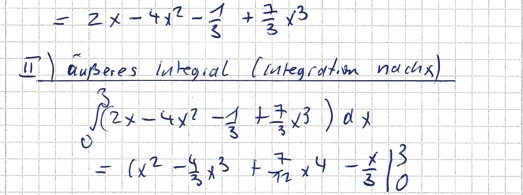 = 2x - 4x² - 1/3 + 7/3 x³
II) äußeres Integral (Integration nach x)
∫₀³ (2x - 4x² - 1/3 + 7/3 x³) dx
= (x² - 4/3 x³ + 7/12 x⁴ - x/3 |₀³